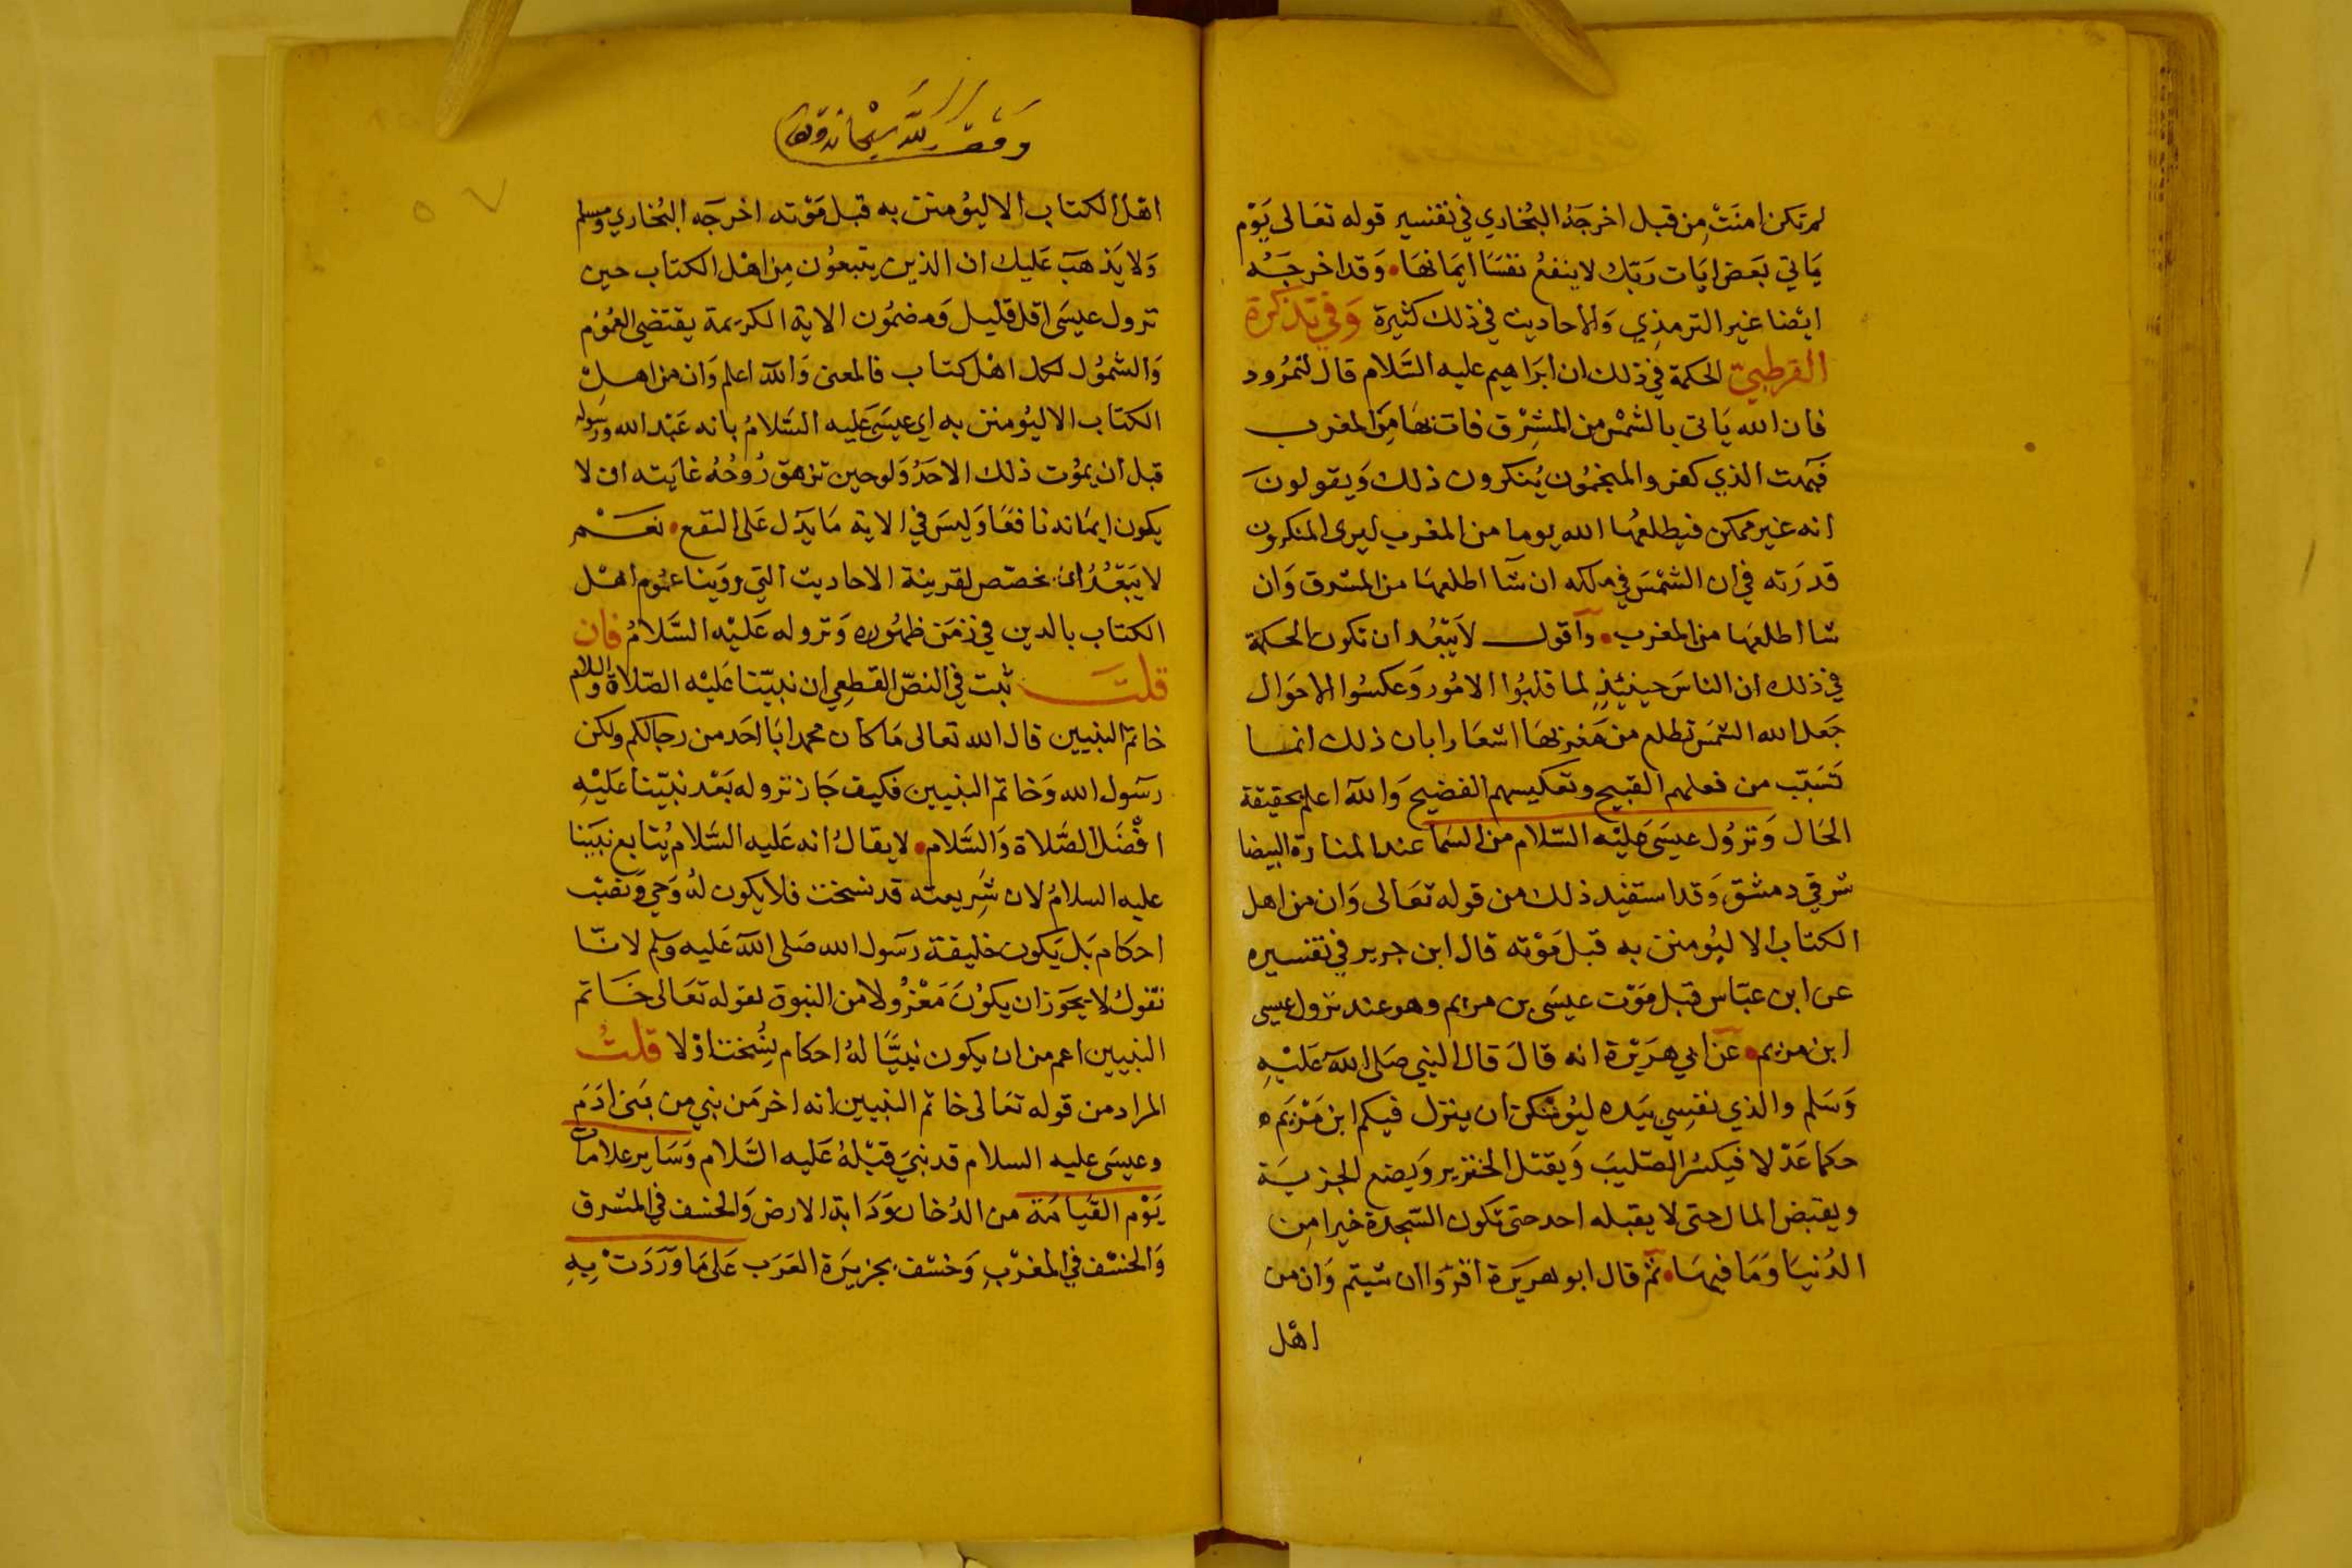 لم تكن امنت من قبل اخرجه البخاري في تفسير قوله تعالى يوم
ياتي بعض ايات ربك لا ينفع نفسا ايمانها • وقد اخرجه
ايضا غير الترمذي والاحاديث في ذلك كثيرة وفي تذكرة
القرطبيّ الحكمة في ذلك ان ابراهيم عليه السلام قال لنمرود
فان الله ياتي بالشمس من المشرق فات بها من المغرب
فبهت الذي كفر والمنجمون ينكرون ذلك ويقولون
انه غير ممكن فيطلعها الله يوما من المغرب ليرى المنكرون
قدرته في ان الشمس في ملكه ان شآ اطلعها من المشرق وان
شا اطلعها من المغرب • وآقول لا يبعد ان تكون الحكمة
في ذلك ان الناس حينئذ لما قلبوا الامور وعكسوا الاحوال
جعل الله الشمس تطلع من مغربها اشعارا بان ذلك انما
تسبب من فعلهم القبيح وتعكيسهم الفضيح والله اعلم بحقيقة
الحال ونزول عيسى عليه السلام من السما عند المنارة البيضا
شرقي دمشق وقد استفيد ذلك من قوله تعالى وان من اهل
الكتاب الا ليؤمنن به قبل موته قال ابن جرير في تفسيره
عن ابن عباس قبل موت عيسى بن مريم وهو عند نزول عيسى
ابن مريم • عن ابي هريرة انه قال قال النبي صلى الله عليه
وسلم والذي نفسي بيده ليوشكن ان ينزل فيكم ابن مريم
حكما عدلا فيكسر الصليب ويقتل الخنزير ويضع الجزية
ويقبض المال حتى لا يقبله احد حتى تكون السجدة خيرا من
الدنيا وما فيها • ثم قال ابو هريرة اقرؤا ان شيتم وان من
اهل
وقف لله سبحانه وتعالى
٥٧
اهل الكتاب الا ليؤمنن به قبل موته اخرجه البخاري ومسلم
ولا يذهب عليك ان الذين يتبعون من اهل الكتاب حين
نزول عيسى اقل قليل ومضمون الاية الكريمة يقتضي العموم
والشمول لكل اهل كتاب فالمعنى والله اعلم وان من اهل
الكتاب الا ليؤمنن به اي عيسى عليه السلام بانه عبد الله ورسوله
قبل ان يموت ذلك الاحد ولو حين تزهق روحه غايته ان لا
يكون ايمانه نافعا وليس في الاية ما يدل على النفع • نعم
لا يبعد ان يخصص لقرينة الاحاديث التي روينا عموم اهل
الكتاب بالدين في زمن ظهوره ونزوله عليه السلام فان
قلت ثبت في النص القطعي ان نبينا عليه الصلاة والسلام
خاتم النبيين قال الله تعالى ما كان محمد ابا احد من رجالكم ولكن
رسول الله وخاتم النبيين فكيف جاز نزوله بعد نبينا عليه
افضل الصلاة والسلام • لا يقال انه عليه السلام يتابع نبينا
عليه السلام لان شريعته قد نسخت فلا يكون له وحي ونصب
احكام بل يكون خليفة رسول الله صلى الله عليه وسلم لانا
نقول لا يجوز ان يكون معزولا من النبوة لقوله تعالى خاتم
النبيين اعم من ان يكون نبيا له احكام نسخت او لا قلت
المراد من قوله تعالى خاتم النبيين انه اخر من نبي من بني ادم
وعيسى عليه السلام قد نبي قبله عليه السلام وساير علامات
يوم القيامة من الدخان ودابة الارض والخسف في المشرق
والخسف في المغرب وخسف بجزيرة العرب على ما وردت به